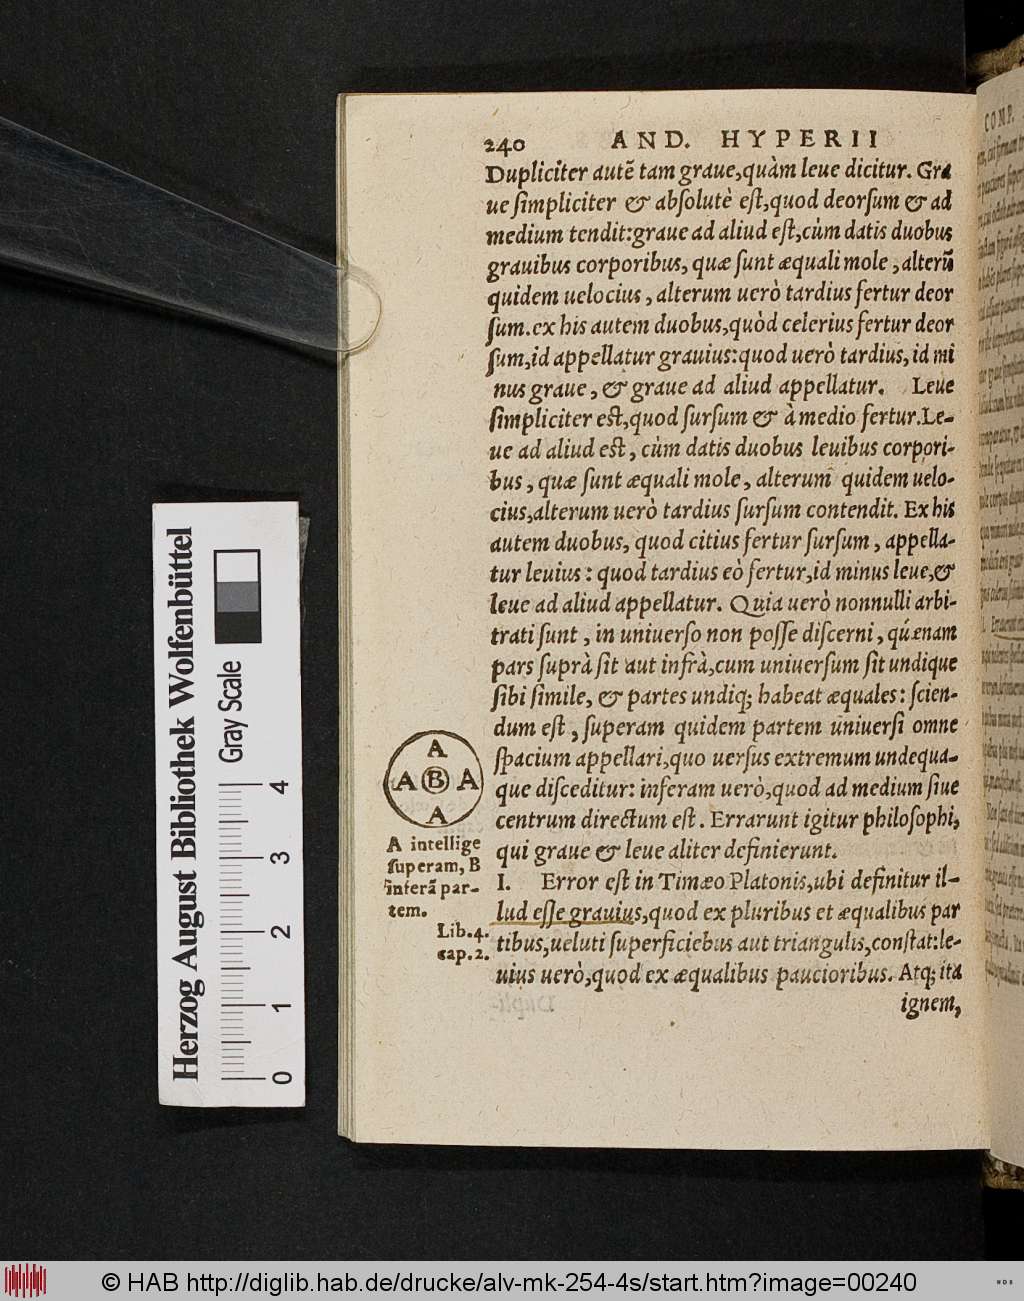 240 AND. HYPERII
Dupliciter autē tam graue,quàm leue dicitur. Gra
ue ſimpliciter & abſolutè eſt,quod deorſum & ad
medium tendit:graue ad aliud eſt,cùm datis duobus
grauibus corporibus, quæ ſunt æquali mole, alterũ
quidem uelocius, alterum uerò tardius fertur deor
ſum.ex his autem duobus,quòd celerius fertur deor
ſum,id appellatur grauius:quod uerò tardius, id mi
nus graue, & graue ad aliud appellatur. Leue
ſimpliciter eſt,quod ſurſum & à medio fertur.Le-
ue ad aliud eſt, cùm datis duobus leuibus corpori-
bus, quæ ſunt æquali mole, alterum quidem uelo-
cius,alterum uerò tardius ſurſum contendit. Ex his
autem duobus, quod citius fertur ſurſum, appella-
tur leuius: quod tardius eò fertur,id minus leue,&
leue ad aliud appellatur. Quia uerò nonnulli arbi-
trati ſunt, in uniuerſo non poſſe diſcerni, quǽnam
pars ſuprà ſit aut infrà,cum uniuerſum ſit undique
ſibi ſimile, & partes undiq; habeat æquales: ſcien-
dum eſt, ſuperam quidem partem uniuerſi omne
ſpacium appellari,quo uerſus extremum undequa-
que diſceditur: inferam uerò,quod ad medium ſiue
centrum directum eſt. Errarunt igitur philoſophi,
qui graue & leue aliter definierunt.
I. Error eſt in Timæo Platonis,ubi definitur il-
lud eſſe grauius,quod ex pluribus et æqualibus par
tibus,ueluti ſuperficiebus aut triangulis,conſtat:le-
uius uerò,quod ex æqualibus paucioribus. Atq; ita
ignem,
A
A B A
A
A intellige
ſuperam, B
inferā par-
tem.
Lib.4.
cap.2.
Herzog August Bibliothek Wolfenbüttel
Gray Scale
0 1 2 3 4
© HAB http://diglib.hab.de/drucke/alv-mk-254-4s/start.htm?image=00240